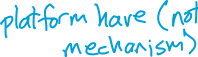 platform have (not
mechanism)